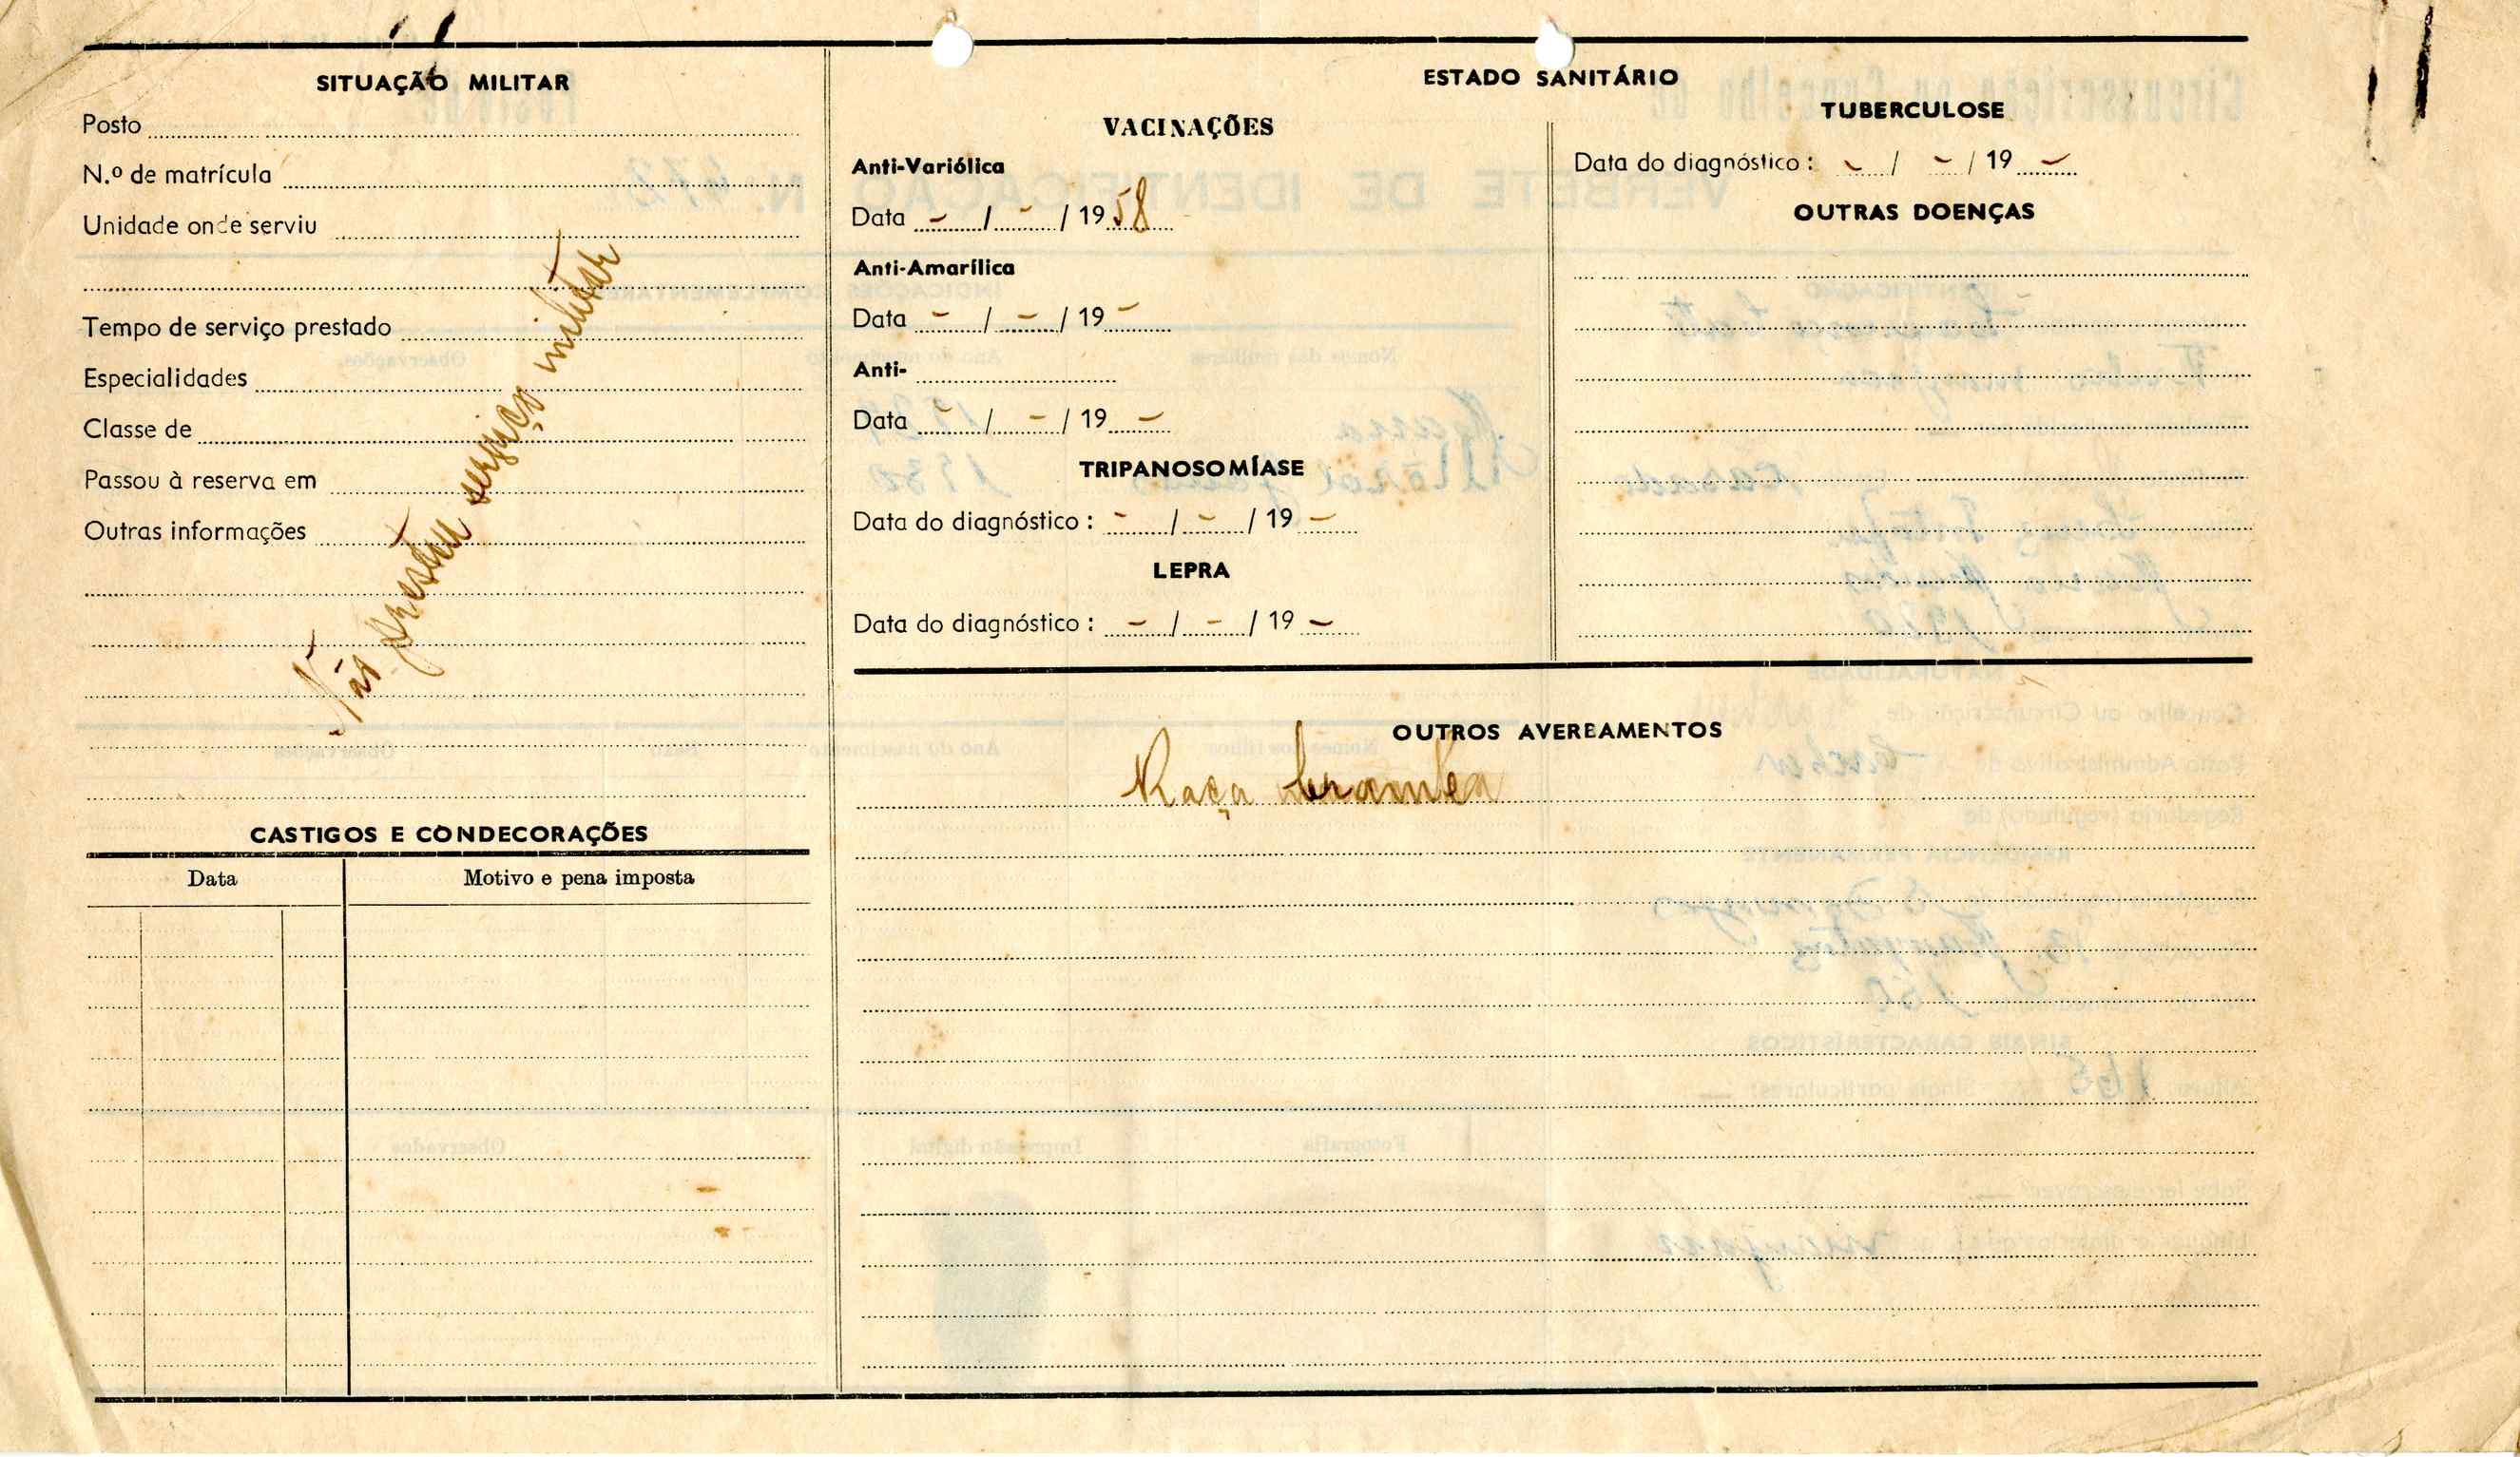 SITUAÇÃO MILITAR
Posto
N.º de matrícula
Unidade onde serviu
Tempo de serviço prestado
Especialidades
Classe de
Passou à reserva em
Outras informações
Não prestou serviço militar
CASTIGOS E CONDECORAÇÕES
Data Motivo e pena imposta
ESTADO SANITÁRIO
VACINAÇÕES
Anti-Variólica
Data - / - / 1958
Anti-Amarílica
Data - / - / 19 -
Anti-
Data - / - / 19 -
TRIPANOSOMÍASE
Data do diagnóstico : - / - / 19 -
LEPRA
Data do diagnóstico : - / - / 19 -
TUBERCULOSE
Data do diagnóstico : - / - / 19 -
OUTRAS DOENÇAS
OUTROS AVERBAMENTOS
Raça